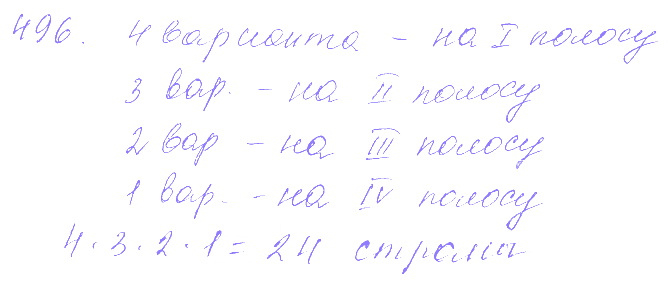 496. 4 варианта - на I полосу
3 вар. - на II полосу
2 вар - на III полосу
1 вар. - на IV полосу
4 · 3 · 2 · 1 = 24 страны